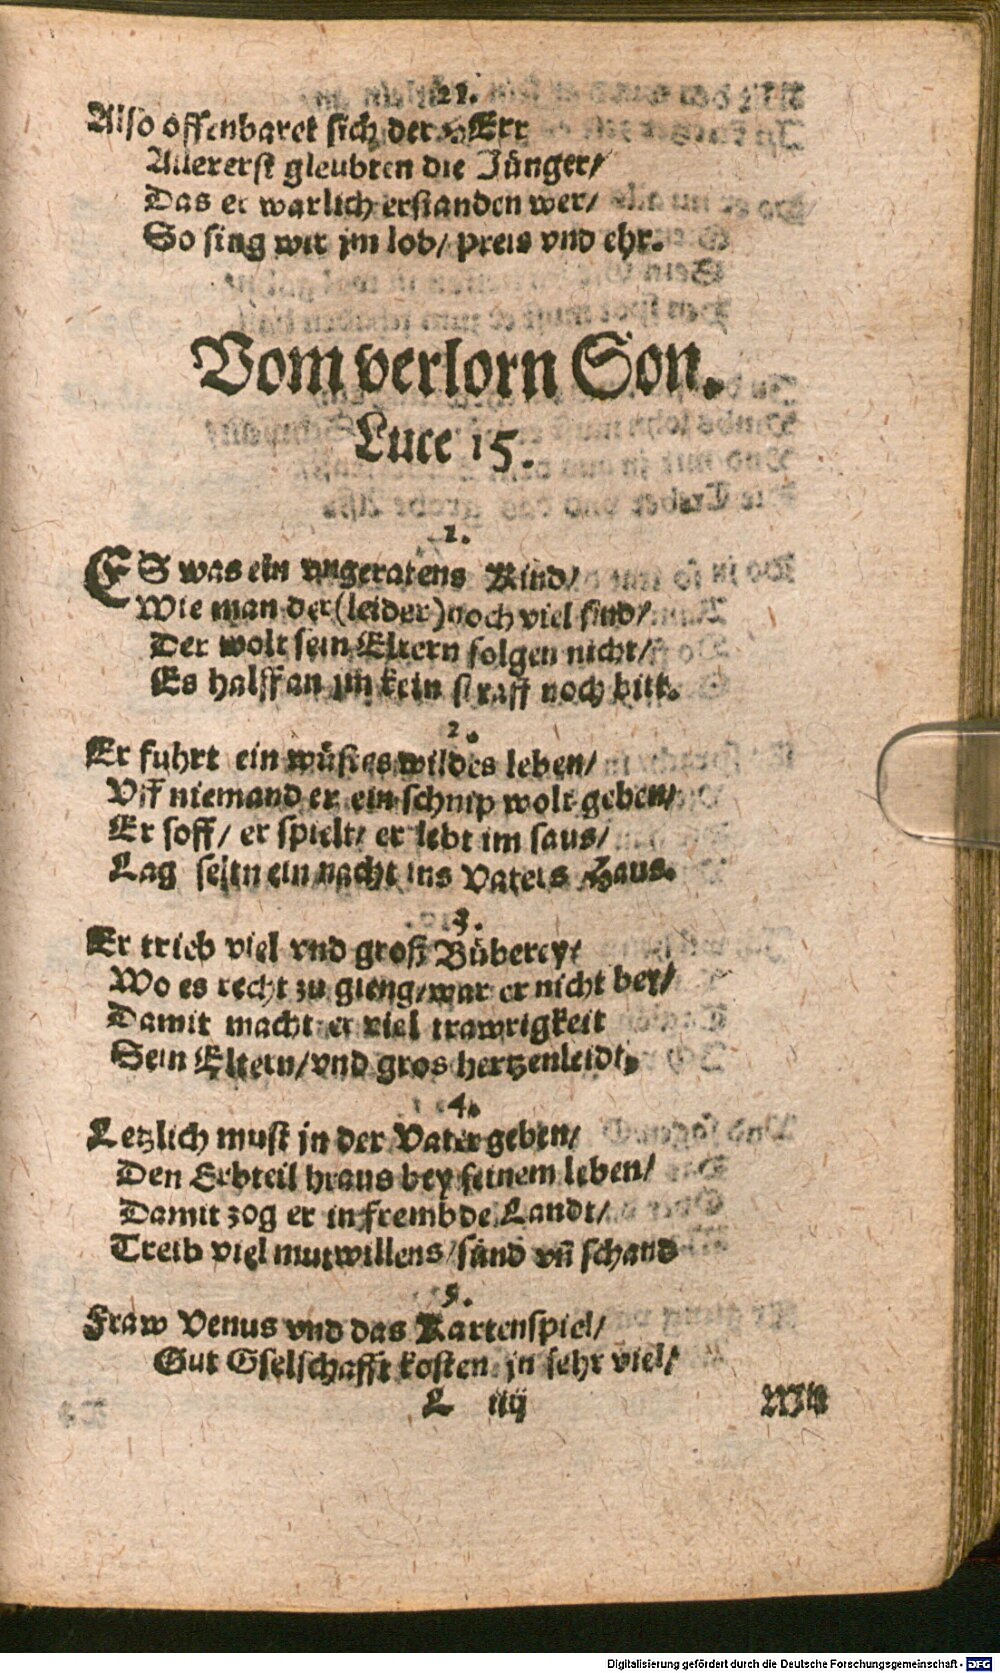 21.
Also offenbaret sich der HErr
Allererst gleubten die Jünger/
Das er warlich erstanden wer/
So sing wir jm lob/ preis vnd ehr.
Vom verlorn Son.
Luce 15.
1.
ES was ein vngeratens Kind/
Wie man der (leider) noch viel find/
Der wolt sein Eltern folgen nicht/
Es halff an jm kein straff noch bitt.
2.
Er fuhrt ein wüstes wildes leben/
Vff niemand er ein schnip wolt geben/
Er soff/ er spielt/ er lebt im saus/
Lag seltn ein nacht ins Vaters Haus.
3.
Er trieb viel vnd groß Büberey/
Wo es recht zu gieng/ war er nicht bey/
Damit macht er viel trawrigkeit
Sein Eltern/ vnd gros hertzenleidt/
4.
Letzlich must jn der Vater geben/
Den Erbteil hraus bey seinem leben/
Damit zog er in frembde Landt/
Treib viel mutwillens/ sünd vñ schand
5.
Fraw Venus vnd das Kartenspiel/
Gut Gselschafft kosten jn sehr viel/
L iiij
Digitalisierung gefördert durch die Deutsche Forschungsgemeinschaft - DFG